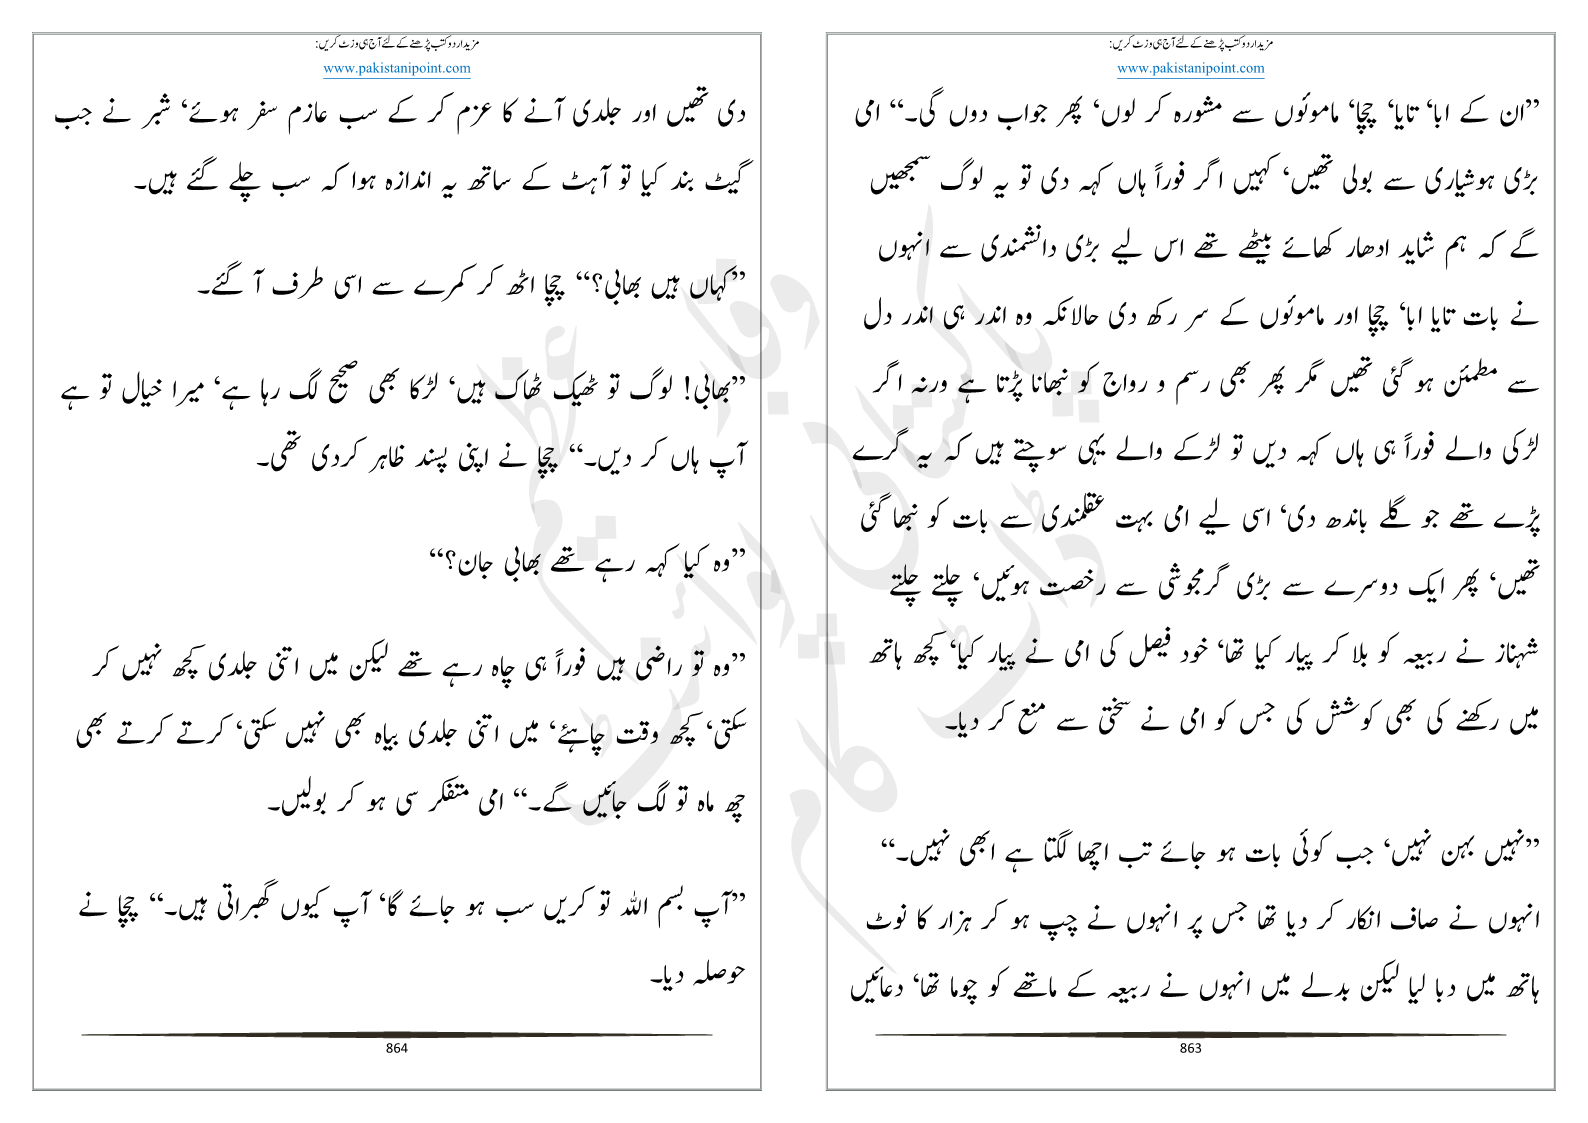 مزید اردو کتب پڑھنے کے لئے آج ہی وزٹ کریں:
www.pakistanipoint.com
”ان کے ابا‘ تایا‘ چچا‘ ماموئوں سے مشورہ کر لوں‘ پھر جواب دوں گی۔“ امی
بڑی ہوشیاری سے بولی تھیں‘ کہیں اگر فوراً ہاں کہہ دی تو یہ لوگ سمجھیں
گے کہ ہم شاید ادھار کھائے بیٹھے تھے اس لیے بڑی دانشمندی سے انہوں
نے بات تایا ابا‘ چچا اور ماموئوں کے سر رکھ دی حالانکہ وہ اندر ہی اندر دل
سے مطمئن ہو گئی تھیں مگر پھر بھی رسم و رواج کو نبھانا پڑتا ہے ورنہ اگر
لڑکی والے فوراً ہی ہاں کہہ دیں تو لڑکے والے یہی سوچتے ہیں کہ یہ گرے
پڑے تھے جو گلے باندھ دی‘ اسی لیے امی بہت عقلمندی سے بات کو نبھا گئی
تھیں‘ پھر ایک دوسرے سے بڑی گرمجوشی سے رخصت ہوئیں‘ چلتے چلتے
شہناز نے ربیعہ کو بلا کر پیار کیا تھا‘ خود فیصل کی امی نے پیار کیا‘ کچھ ہاتھ
میں رکھنے کی بھی کوشش کی جس کو امی نے سختی سے منع کر دیا۔
”نہیں بہن نہیں‘ جب کوئی بات ہو جائے تب اچھا لگتا ہے ابھی نہیں۔“
انہوں نے صاف انکار کر دیا تھا جس پر انہوں نے چپ ہو کر ہزار کا نوٹ
ہاتھ میں دبا لیا لیکن بدلے میں انہوں نے ربیعہ کے ماتھے کو چوما تھا‘ دعائیں
863
مزید اردو کتب پڑھنے کے لئے آج ہی وزٹ کریں:
www.pakistanipoint.com
دی تھیں اور جلدی آنے کا عزم کر کے سب عازم سفر ہوئے‘ شبر نے جب
گیٹ بند کیا تو آہٹ کے ساتھ یہ اندازہ ہوا کہ سب چلے گئے ہیں۔
”کہاں ہیں بھابی؟“ چچا اٹھ کر کمرے سے اسی طرف آ گئے۔
”بھابی! لوگ تو ٹھیک ٹھاک ہیں‘ لڑکا بھی صحیح لگ رہا ہے‘ میرا خیال تو ہے
آپ ہاں کر دیں۔“ چچا نے اپنی پسند ظاہر کردی تھی۔
”وہ کیا کہہ رہے تھے بھابی جان؟“
”وہ تو راضی ہیں فوراً ہی چاہ رہے تھے لیکن میں اتنی جلدی کچھ نہیں کر
سکتی‘ کچھ وقت چاہئے‘ میں اتنی جلدی بیاہ بھی نہیں سکتی‘ کرتے کرتے بھی
چھ ماہ تو لگ جائیں گے۔“ امی متفکر سی ہو کر بولیں۔
”آپ بسم اللہ تو کریں سب ہو جائے گا‘ آپ کیوں گھبراتی ہیں۔“ چچا نے
حوصلہ دیا۔
864
پاکستانی پوائنٹ ڈاٹ کام